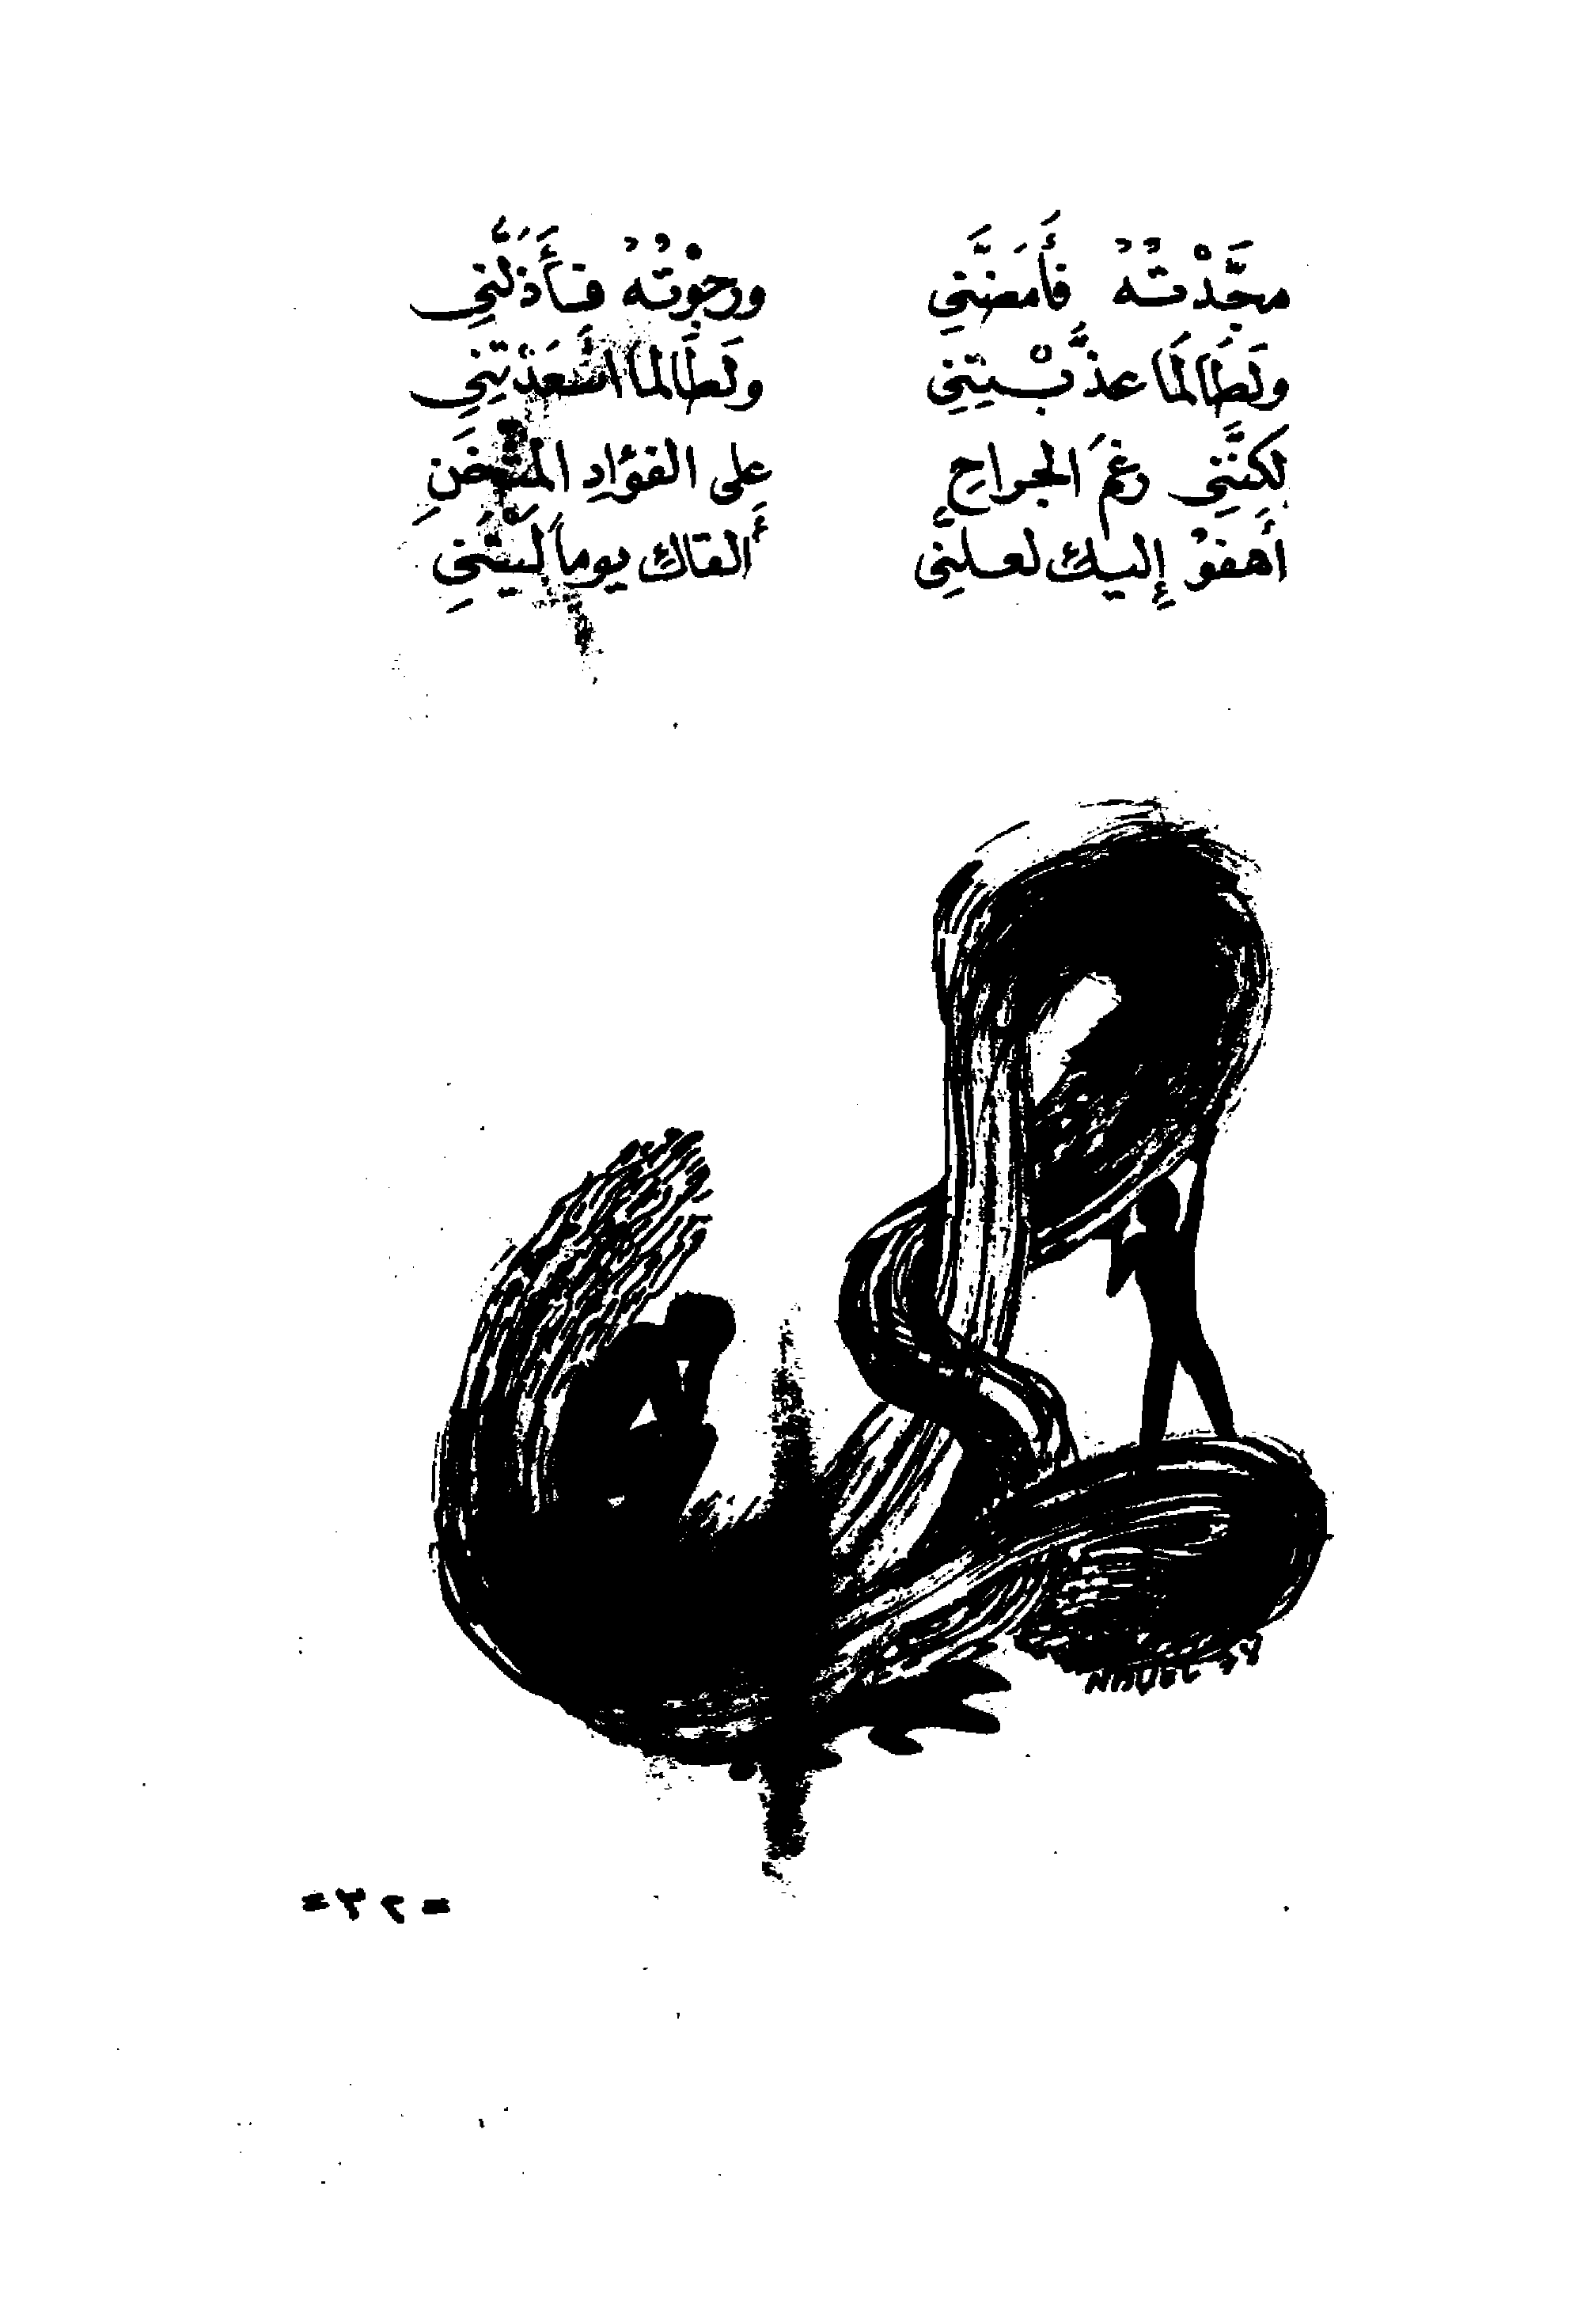 مجَّدْتُهُ فأَمَضَّنِي ورجوْتُهُ فأَذَلَّنِي
ولَطَالَمَا عذَّبْتِنِي ولَطَالما أسعَدْتِنِي
لكنَّنِي رغمَ الجراحِ على الفؤادِ المثخَنِ
أَهفوْ إليك لعلنِّي ألقاك يوماً ليْتَنِي
NOUEL
=٣٢=